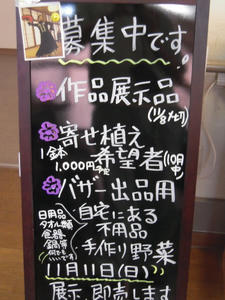 募集中です。
作品展示品
(11/8ナセリ)
寄せ植え
1鉢
1,000円
希望者(10月中)
バザー出品用
日用品
タオル類
食器、
鍋等
何でも
いいです
自宅にある
不用品
手作り野菜
11月11日(日)
展示、即売します